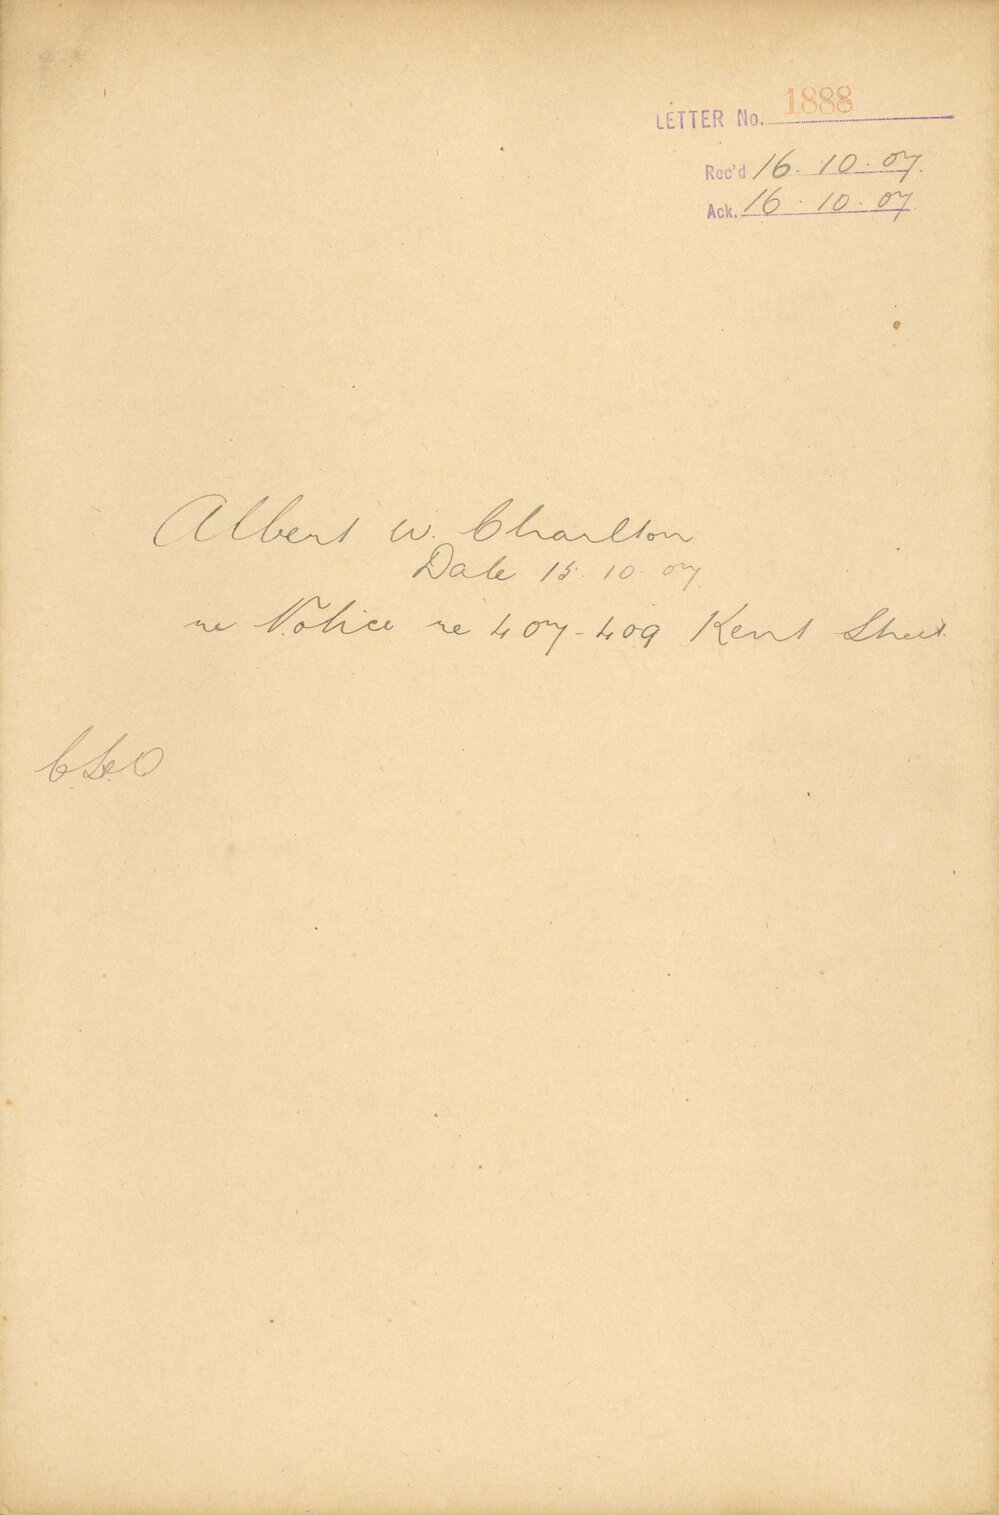 LETTER No. 1888
Rec'd 16.10.07.
Ack. 16.10.07.
Albert W. Charlton
Date 15.10.07.
re Notice re 407-409 Kent Street